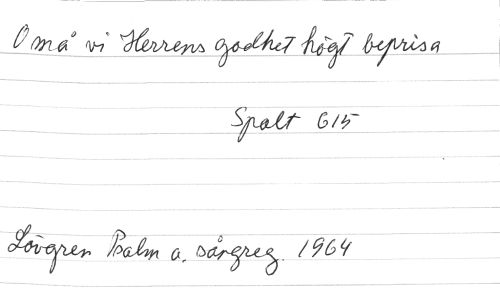 O må vi Herrens godhet högt beprisa
Spalt 615
Lövgren Psalm o. sångreg. 1964